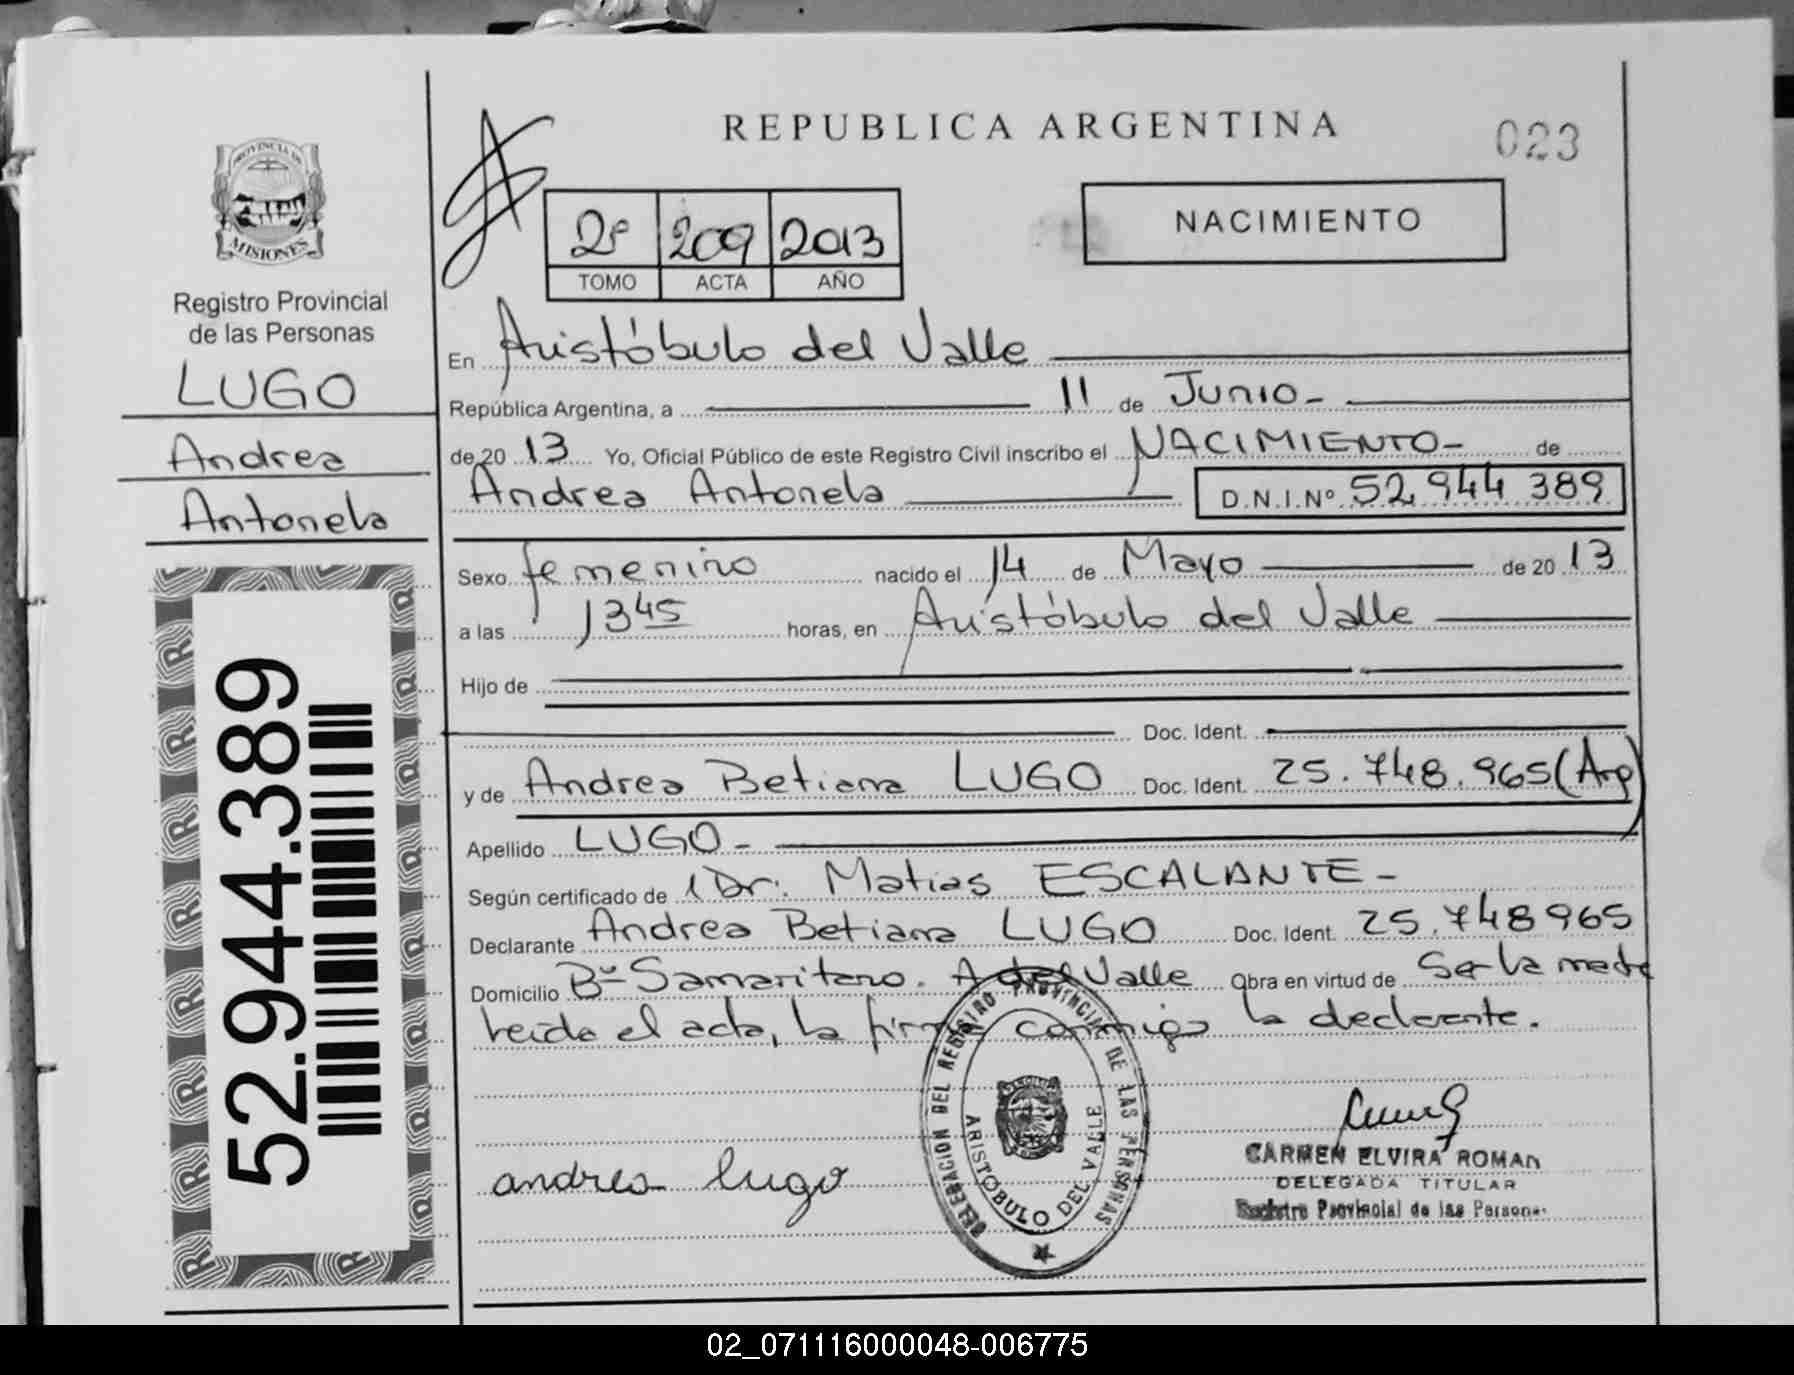 PROVINCIA DE
MISIONES
Registro Provincial
de las Personas
LUGO
Andrea
Antonela
52.944.389
REPUBLICA ARGENTINA
023
2º 209 2013
TOMO ACTA AÑO
NACIMIENTO
En Aristóbulo del Valle
República Argentina, a 11 de Junio-
de 20 13 Yo, Oficial Público de este Registro Civil inscribo el NACIMIENTO- de
Andrea Antonela D.N.I.Nº 52.944 389
Sexo femenino nacido el 14 de Mayo de 20 13
a las 13 45 horas, en Aristóbulo del Valle
Hijo de
Doc. Ident.
y de Andrea Betiana LUGO Doc. Ident. 25.748.965 (Arg)
Apellido LUGO-
Según certificado de Dr. Matias ESCALANTE-
Declarante Andrea Betiana LUGO Doc. Ident. 25.748965
Domicilio Bº Samaritano. A del Valle Obra en virtud de Ser la madre
leída el acta, la firma conmigo la declarante.
DELEGACION DEL REGISTRO PROVINCIAL DE LAS PERSONAS
ARISTOBULO DEL VALLE
andrea lugo
CARMEN ELVIRA ROMAN
DELEGADA TITULAR
Registro Provincial de las Personas
02_071116000048-006775